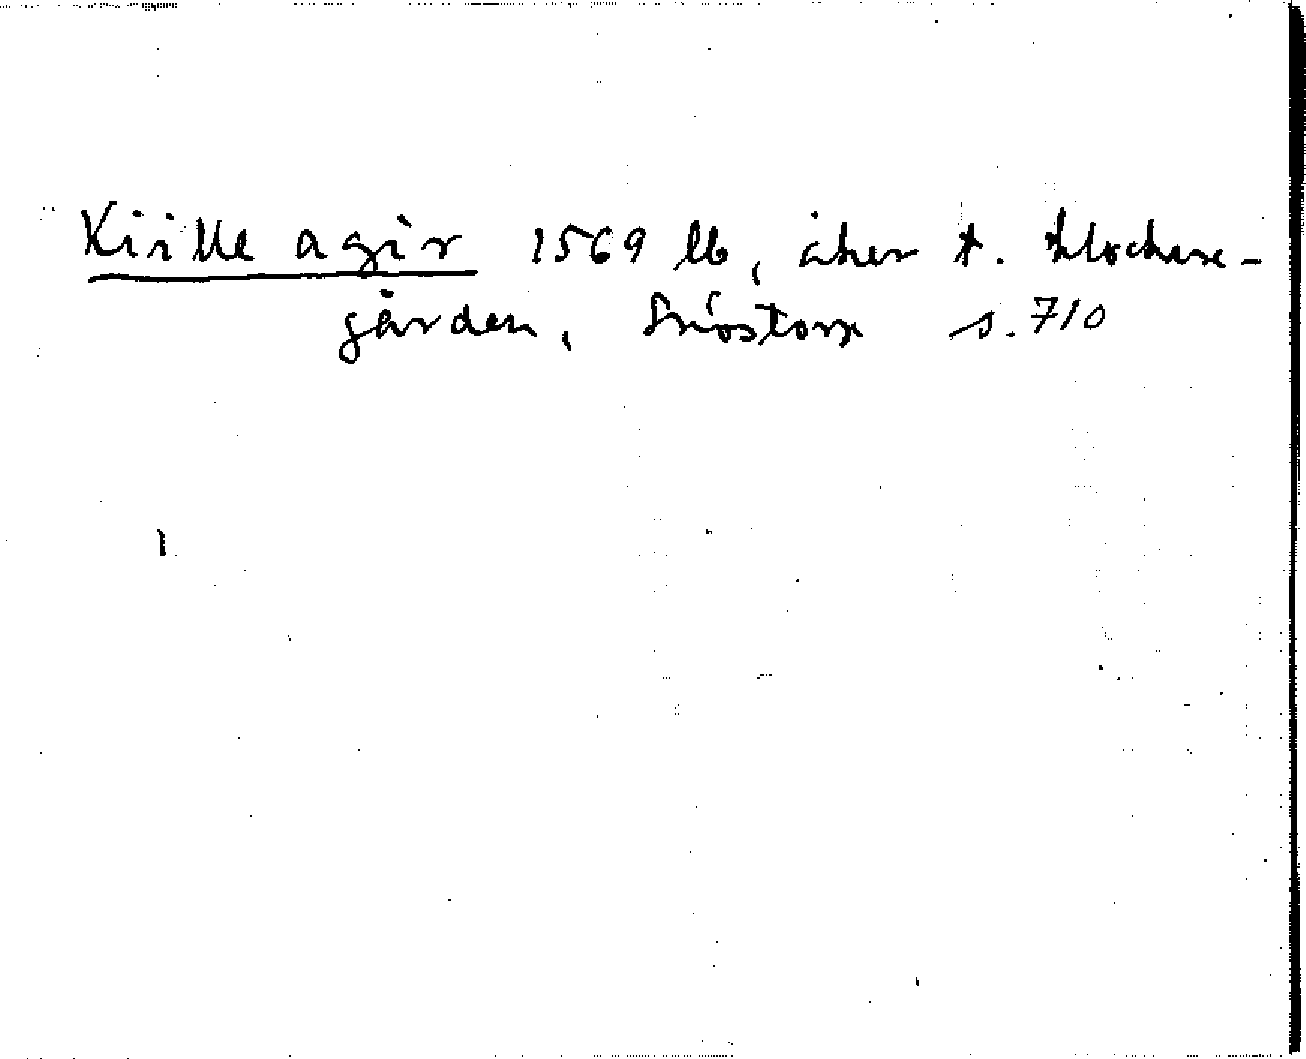 Kiille agir 1569 lb, åker t. klockare-
gården, Snöstorp s. 710